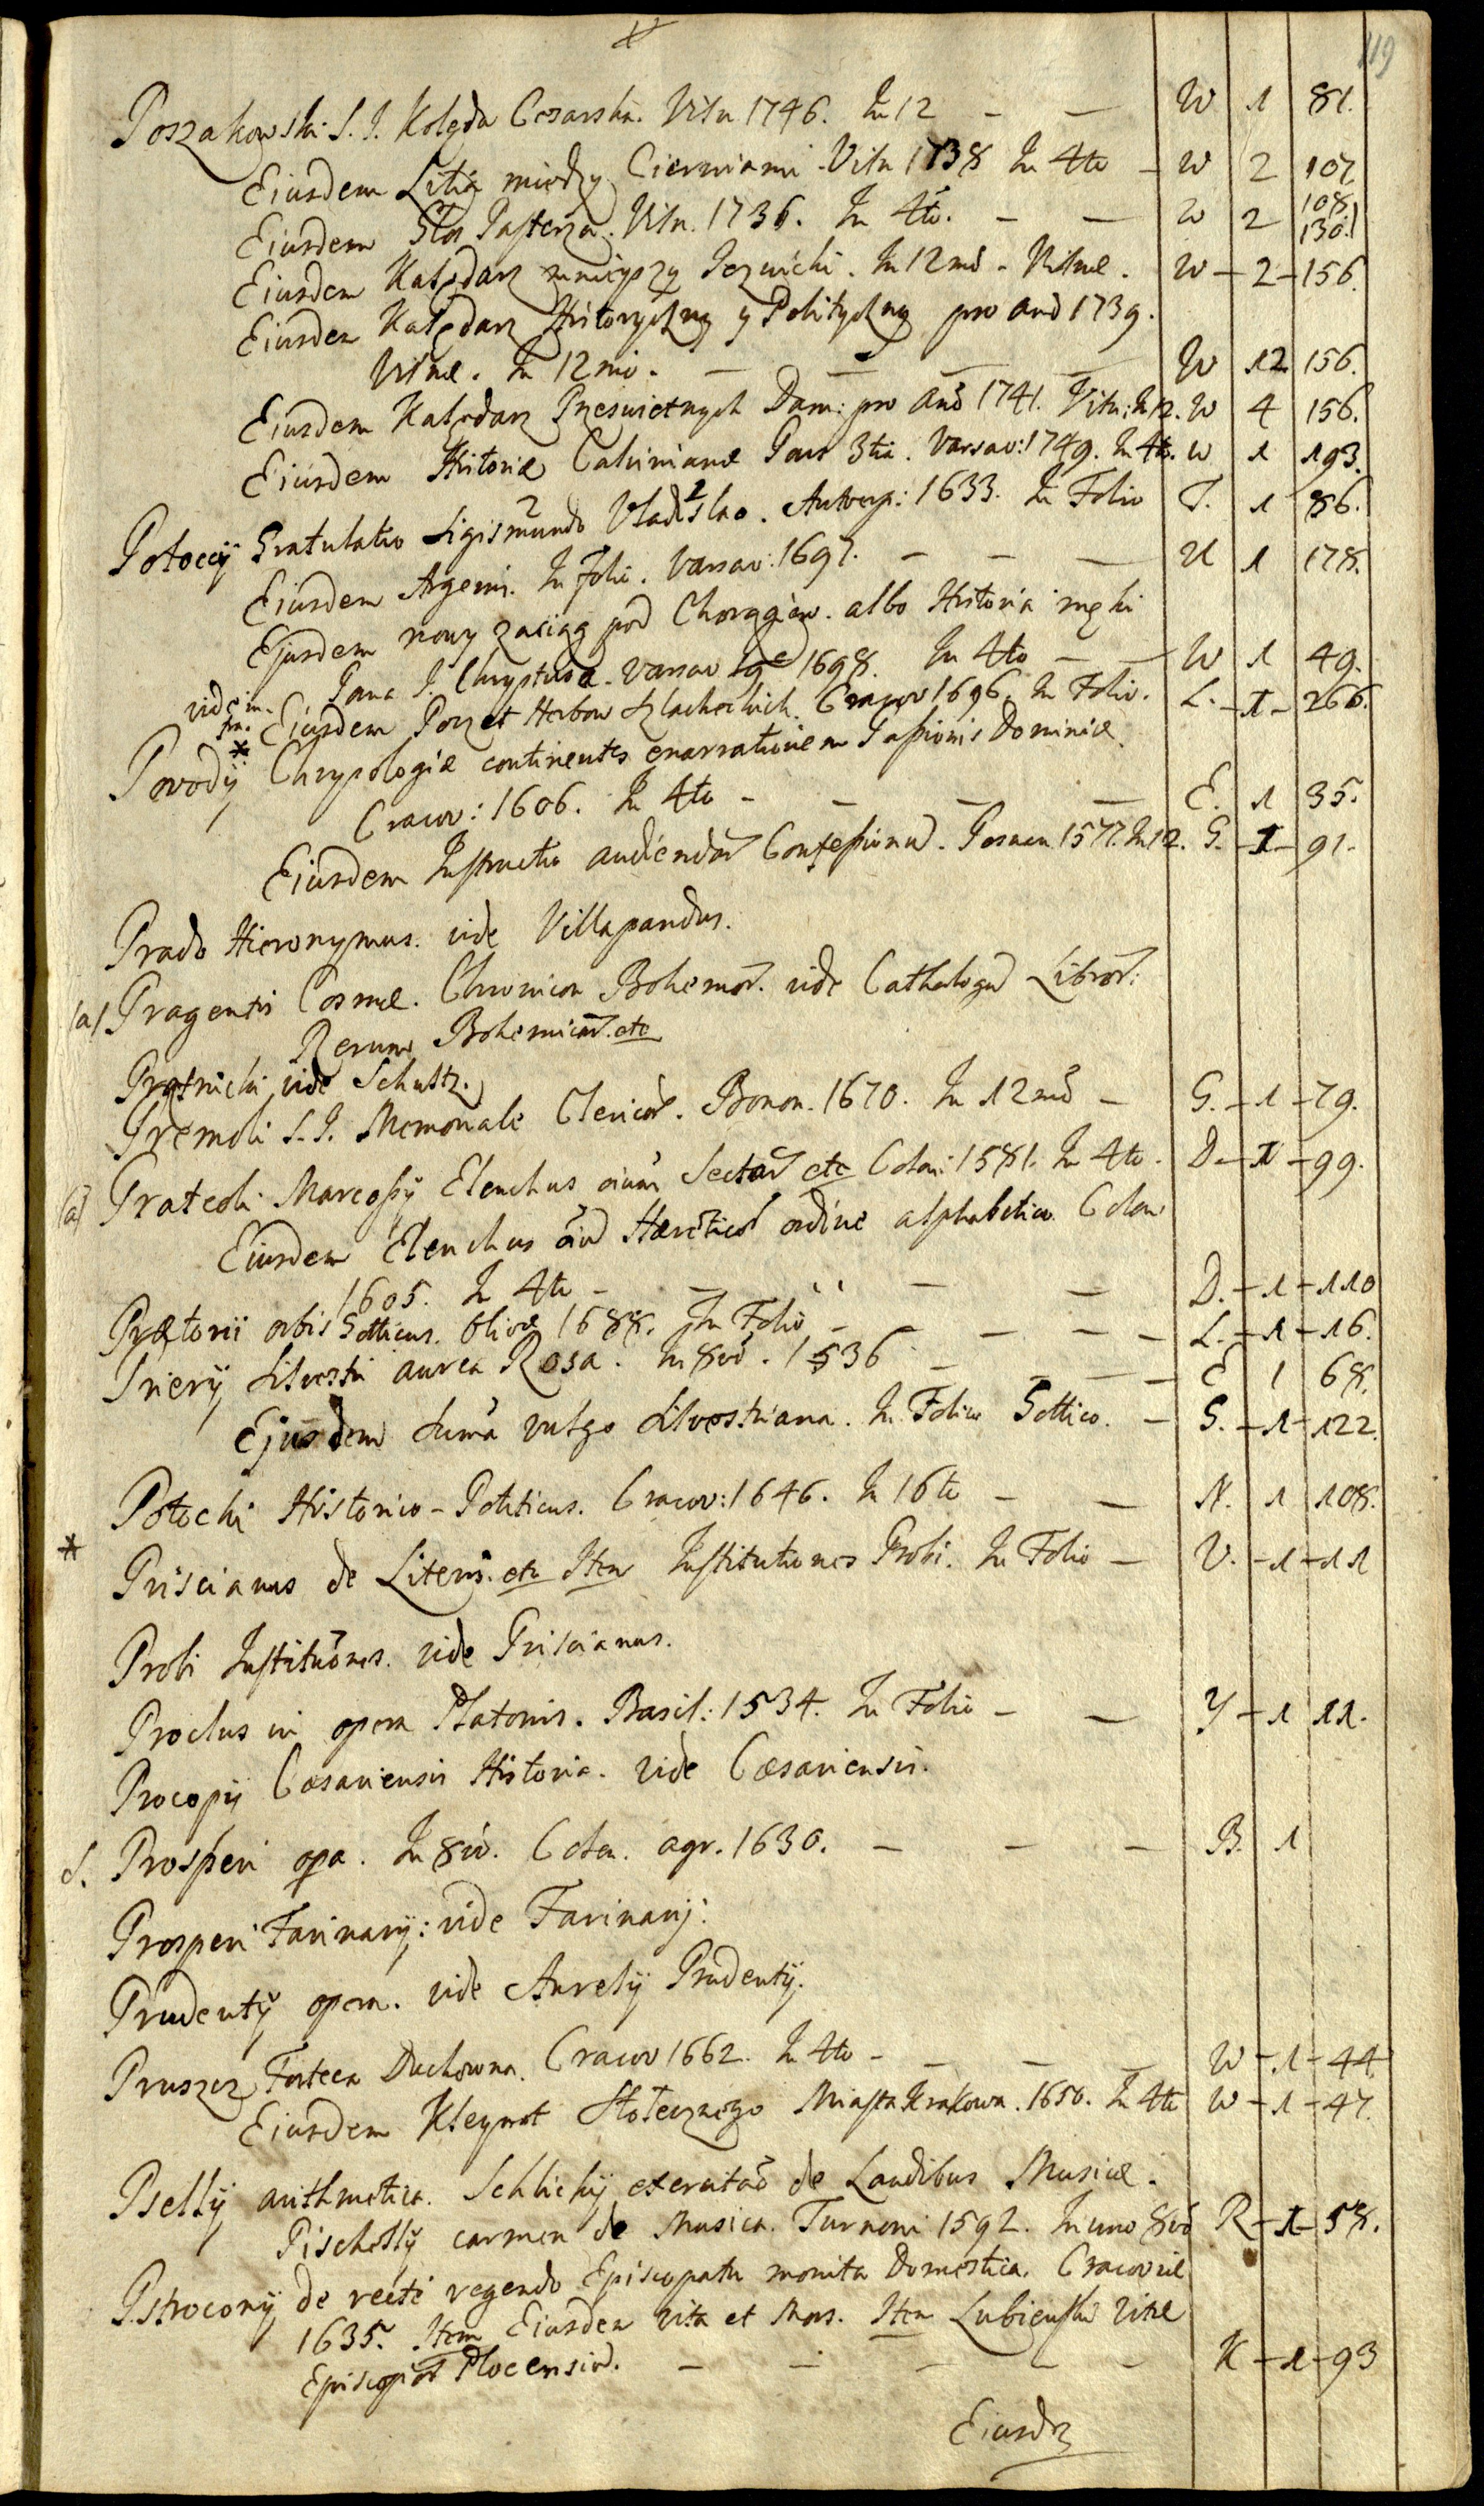 119
Poszakowski S. J. Kolęda Cesarska. Viln 1746. In 12 — — W 1 81.
Eiusdem Lilia między Cierniami. Viln 1738 In 4to — W 2 107
Eiusdem Głos Pasterza. Viln. 1736. In 4to. — — W 2 108. 130.
Eiusdem Kalędarz mnieyszy Jezuicki. In 12mo. Vilnæ. W — 2 — 156.
Eiusdem Kalędarz Historyczny y Polityczny pro anō 1739.
Vilnæ. In 12mo. — — — — W 12 156.
Eiusdem Kalędarz Przeswietnych Dam: pro anō 1741. Viln: In 12. W 4 156.
Eiusdem Historiæ Calvinianæ Pars 3tia. Varsav: 1749. In 4to. W 1 193.
Potocÿ Gratulatio Sigismundo Vladislao. Antverp: 1633. In Folio T. 1 86.
Eiusdem Argenis. In Folio. Varsav: 1697. — — — U 1 178.
Ejusdem nowy zaciąg pod Chorągiew. albo Historia męki
Pana J. Chrystusa. Varsav 1698. In 4to — — W 1 49.
vide in fin. Eiusdem Poczet Herbow Szlacheckich. Cracov 1696. In Folio. L. — 1 — 266.
* Povodÿ Chrypologiæ continentis enarrationem Passionis Dominicæ.
Cracov: 1606. In 4to — — — — E. 1 35.
Eiusdem Instructio audiendar Confessionū. Posnan 1577. In 12. G. — 1 — 91.
Prado Hieronymus. vide Villapandus.
(a) Pragensis Cosmæ. Chronicon Bohemor. vide Cathalogū Libror:
Rerum Bohemicar. etc
Pratnicki vide Schultz.
Premoli S. J. Memoriale Clericor. Bonon. 1670. In 12mo — G. — 1 — 79.
(a) Prateoli Marcossÿ Elenchus oium Sectar etc Colon: 1581. In 4to. D — 1 — 99.
Eiusdem Elenchus oiū Hæreticor ordine alphabetico. Colon
1605. In 4to — — — — D. — 1 — 110
Prætorii orbis Gotticus. Olivæ 1688. In Folio — — — — — L. — 1 — 16.
Prierÿ Silvestri aurea Rosa. In 8vo. 1536 — — — — E 1 68.
Ejusdem Suma vulgo Silvestriana. In Folio Gottico. — G. — 1 — 122.
Potocki Historico-Politicus. Cracov: 1646. In 16to — — N. 1 108.
* Priscianus de Literis. etc Item Institutiones Probi. In Folio — V. — 1 — 11
Probi Institutōnes. vide Priscianus.
Proclus in opera Platonis. Basil: 1534. In Folio — — Y — 1 11.
Procopÿ Cæsariensis Historia. vide Cæsariensis.
S. Prosperi opa. In 8vo. Colon. agr. 1630. — — — B. 1
Prosperi Farinarij: vide Farinarij.
Prudentÿ opera. vide Aurelÿ Prudentÿ.
Pruszcz Forteca Duchowna. Cracov 1662. In 4to — — — — W — 1 — 44
Eiusdem Kleynot Stołecznego Miasta Krakowa. 1650. In 4to W — 1 — 47.
Psellÿ arithmetica. Schlichÿ exercitāo de Laudibus Musicæ.
Pischellÿ carmen de Musica. Turnoni 1592. In uno 8vo R — 1 — 58.
Pstroconÿ de recte regendo Episcopatu monita Domestica. Cracoviæ
1635. Item Eiusdem vita et Mors. Item Lubienski vitæ
Episcopor Plocensiū. — — — — — K — 1 — 93
Eiusdē